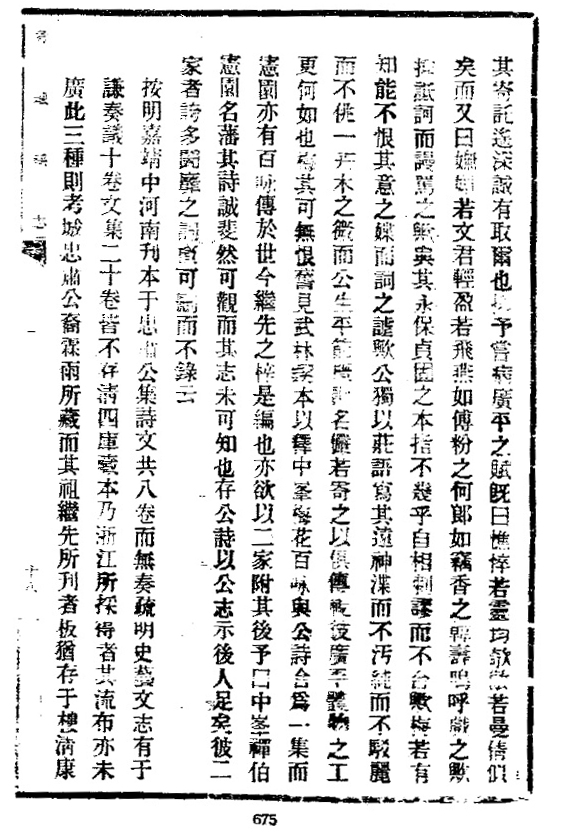 其寄託遙深誠有取爾也予嘗病廣平之賦既曰憔悴若靈均欹傲若曼倩
矣而又曰嫵媚若文君輕盈若飛燕如傅粉之何郎如竊香之韓壽嗚呼戲之歟
詆訶而謾罵之歟與其永保貞固之本指不幾乎自相剌謬而不合歟梅若有
知能不恨其意之媟而詞之謔歟公獨以莊語寫其遠神渫而不汚純而不駁麗
而不佻一卉木之微而公生平名儷若寄之以俱傳視彼廣平體物之工
更何如也梅其可無恨舊見武林本以釋中峯梅花百咏與公詩合爲一集而
憲園亦有百咏傳於世今繼先之梓是編也亦欲以二家附其後予曰中峯禪伯
憲園名藩其詩誠斐然可觀而其志未可知也存公詩以公志示後人足矣彼二
家者詩多闘靡之詞可而不錄云
按明嘉靖中河南刊本于忠肅公集詩文共八卷而無奏疏明史藝文志有于
謙奏議十卷文集二十卷皆不存淸四庫本乃浙江所採得者其流布亦未
廣此三種則考城忠肅公裔霖雨所藏而其祖繼先所刊者板猶存于樓淸康
考城縣志
十八
675